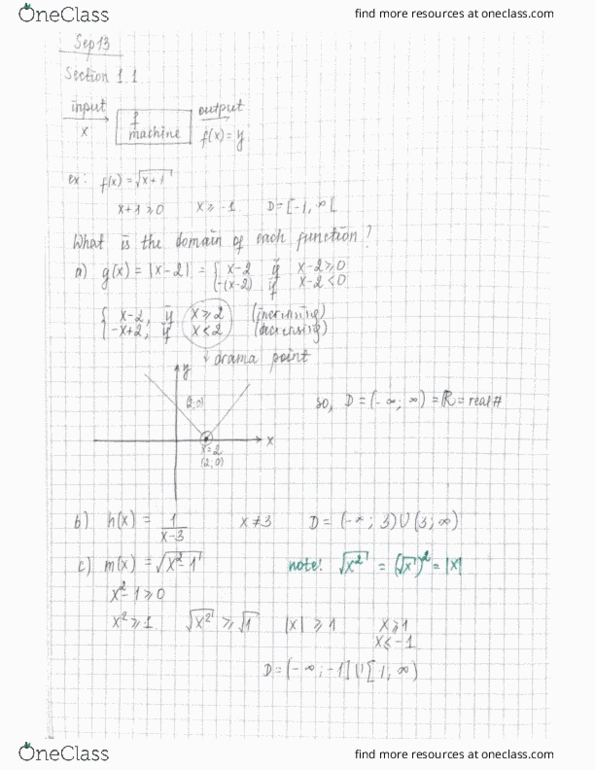 OneClass
find more resources at oneclass.com
Sep 13
Section 1.1
input
x
f
machine
output
f(x) = y
ex: f(x) = √(x+1)
x+1 ≥ 0 x ≥ -1 D = [-1, ∞[
What is the domain of each function?
a) g(x) = |x-2| = { x-2 if x-2 ≥ 0
-(x-2) if x-2 < 0
{ x-2, if x ≥ 2 (increasing)
-x+2, if x < 2 (decreasing)
↓ drama point
y
(2; 0)
so, D = (-∞; ∞) = ℝ = real #
x
x=2
(2; 0)
b) h(x) = 1/(x-3) x ≠ 3 D = (-∞; 3) ∪ (3; ∞)
c) m(x) = √(x²-1) note! √(x²) = (√x)² = |x|
x²-1 ≥ 0
x² ≥ 1 √(x²) ≥ √1 |x| ≥ 1 x ≥ 1
x ≤ -1
D = (-∞; -1] ∪ [1, ∞)
OneClass
find more resources at oneclass.com